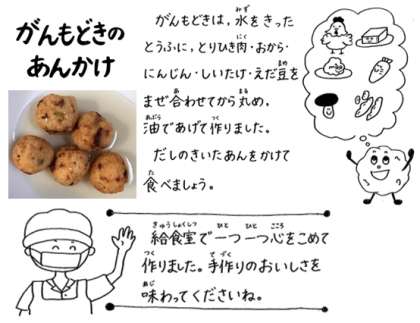 がんもどきの
あんかけ
がんもどきは，水をきった
とうふに，とりひき肉・おから・
にんじん・しいたけ・えだ豆を
まぜ合わせてから丸め，
油であげて作りました。
だしのきいたあんをかけて
食べましょう。
給食室で一つ一つ心をこめて
作りました。手作りのおいしさを
味わってくださいね。